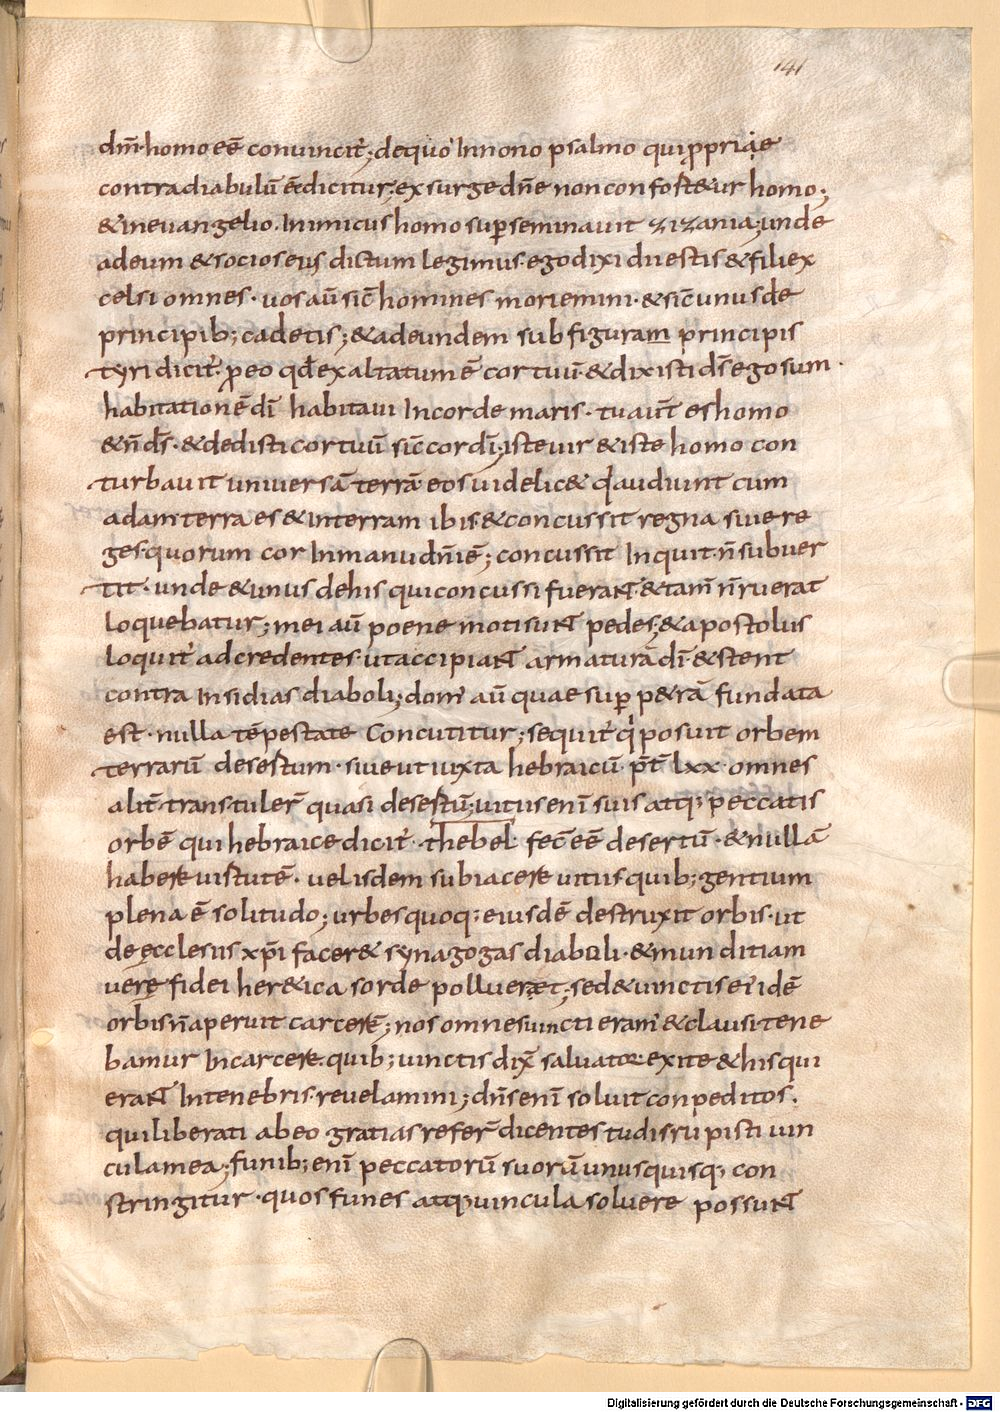 141
dm̄·homo eē conuincit᷑; dequo Innono psalmo quiꝓpriae
contradiabulū ēdicitur; exsurge dn̄e non confort&ur homo;
&ineuangelio. Inimicus homo suꝑseminauit zizania; unde
adeum &socios eius dictum legimus· ego dixi dii estis & filii ex
celsi omnes· uos aū sic̄ homines moriemini· & sic̄ unus de
principib; cadetis; & adeundem sub figuram principis
tyri dicit᷑· ꝓ eo qđ exaltatum ē cor tuū· & dixisti ds̄ ego sum·
habitationē dī habitaui Incorde maris· tu aut̄ es homo
& n̄ ds̄· & dedisti cor tuū sic̄ cor dī; iste uir & iste homo con
turbauit uniuersā terrā eos uidelic& q᷑ audiunt cum
adam· terra es & interram ibis· & concussit regna siue re
ges· quorum cor Inmanu dn̄i ē; concussit Inquit· n̄ subuer
tit· unde & unus dehis qui concussi fuerant· & tam̄ n̄ ruerat
loquebatur; mei aū poene moti sunt pedes; & apostolus
loquit᷑ ad credentes· ut accipiant armaturā dī· & stent
contra Insidias diaboli; dom᷒ aū quae suꝑ p&rā fundata
est· nulla tēpestate Concutitur; sequit᷑ q᷑ posuit orbem
terrarū desertum· siue ut iuxta hebraicū p̄t̄ lxx· omnes
alit̄ transtuler̄ quasi desertū; uitiis enī suis atq; peccatis
orbē qui hebraice dicit᷑· thebel· fec̄ eē desertū· & nullā
habere uirtutē· uel isdem subiacere uitiis quib; gentium
plena ē solitudo; urbes quoq; eiusdē destruxit orbis· ut
de ęcclesiis xp̄i facer& synagogas diaboli· & munditiam
uerę fidei her&ica sorde pollueræt; sed & uinctis ei᷒dē
orbis n̄ aperuit carcerē; nos omnes uincti eram᷒ & clausi tene
bamur Incarcere. quib; uinctis dix̄ saluator· exite & his qui
erant Intenebris· reuelamini; dn̄s enī soluit conpeditos.
qui liberati ab eo gratias refer̄ dicentes tu disrupisti uin
cula mea; funib; enī peccatorū suorū unusquisq; con
stringitur· quos funes atq; uincula soluere possunt
Digitalisierung gefördert durch die Deutsche Forschungsgemeinschaft - DFG